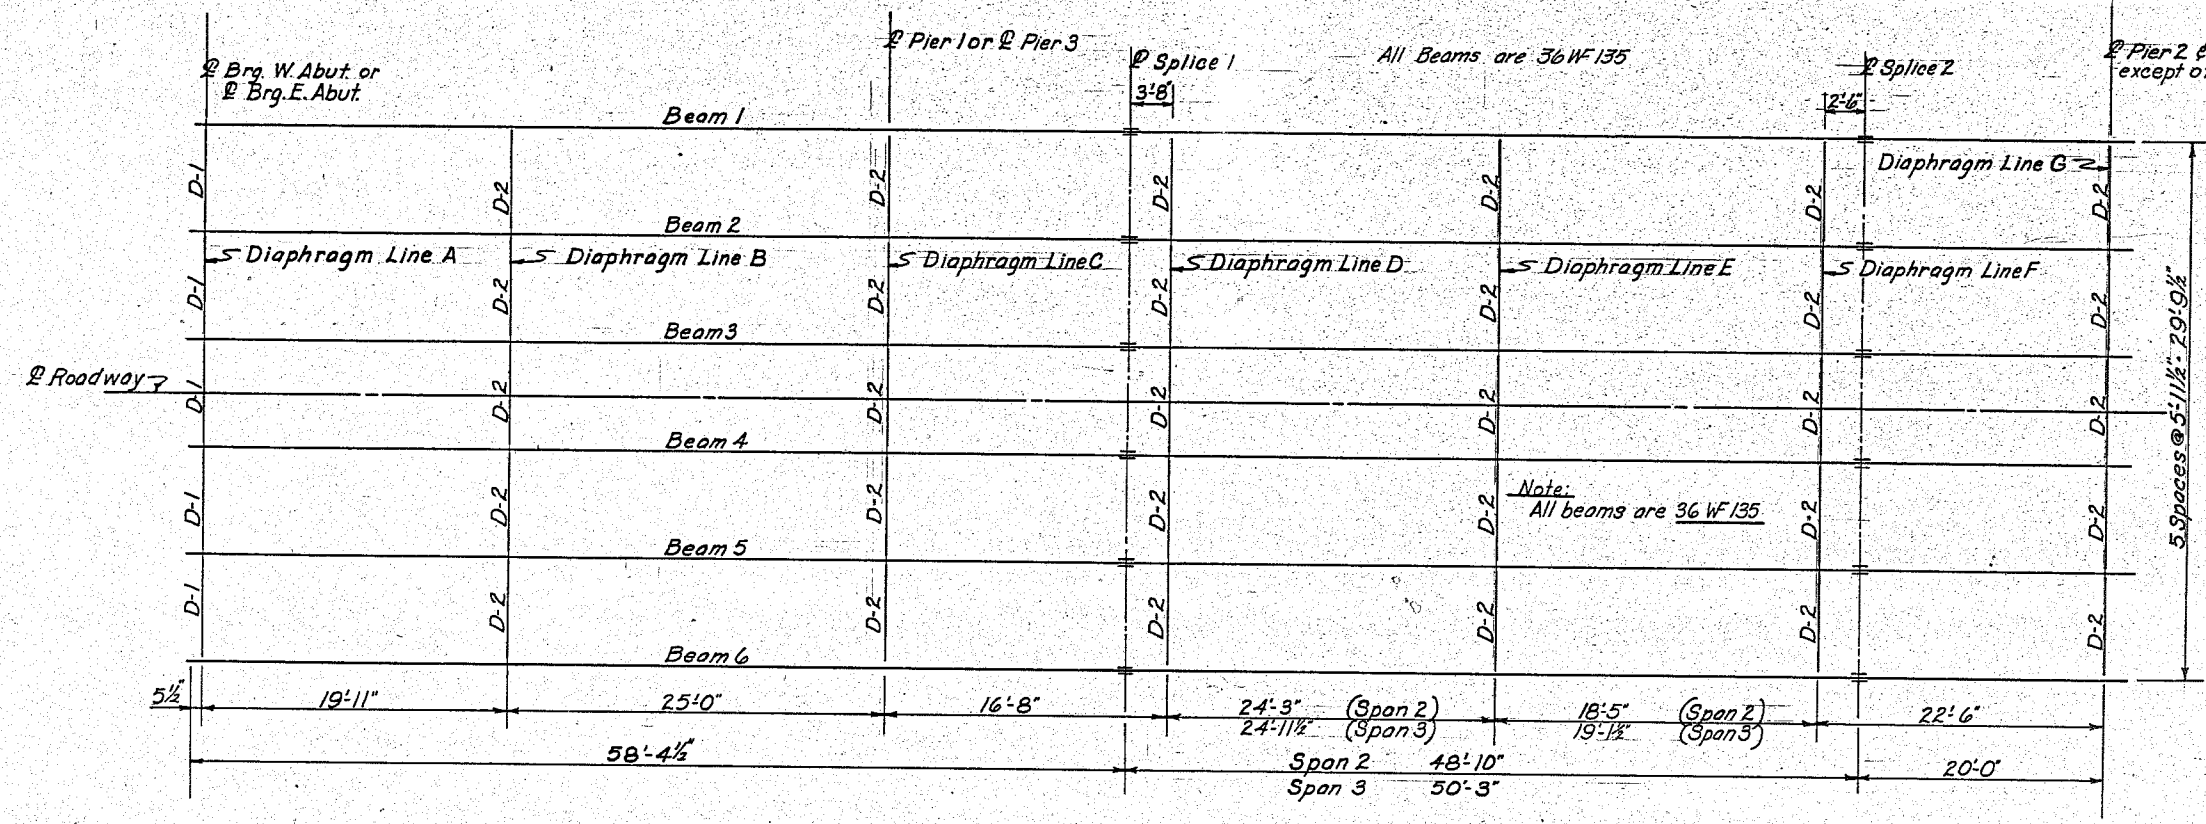 ℄ Brg. W. Abut. or
℄ Brg. E. Abut.
℄ Pier 1 or ℄ Pier 3
℄ Splice 1
3'-8"
All Beams are 36 WF 135
℄ Splice 2
2'-6"
℄ Pier 2 &
except o
Beam 1
D-1
D-2
D-2
D-2
D-2
D-2
Diaphragm Line G
D-2
Beam 2
Diaphragm Line A
Diaphragm Line B
Diaphragm Line C
Diaphragm Line D
Diaphragm Line E
Diaphragm Line F
D-1
D-2
D-2
D-2
D-2
D-2
D-2
5 Spaces @ 5'-11½" = 29'-9½"
Beam 3
℄ Roadway
D-1
D-2
D-2
D-2
D-2
D-2
D-2
Beam 4
D-1
D-2
D-2
D-2
D-2
Note:
All beams are 36 WF 135
D-2
D-2
Beam 5
D-1
D-2
D-2
D-2
D-2
D-2
D-2
Beam 6
5½"
19'-11"
25'-0"
16'-8"
24'-3" (Span 2)
24'-11½" (Span 3)
18'-5" (Span 2)
19'-1½" (Span 3)
22'-6"
58'-4½"
Span 2 48'-10"
Span 3 50'-3"
20'-0"